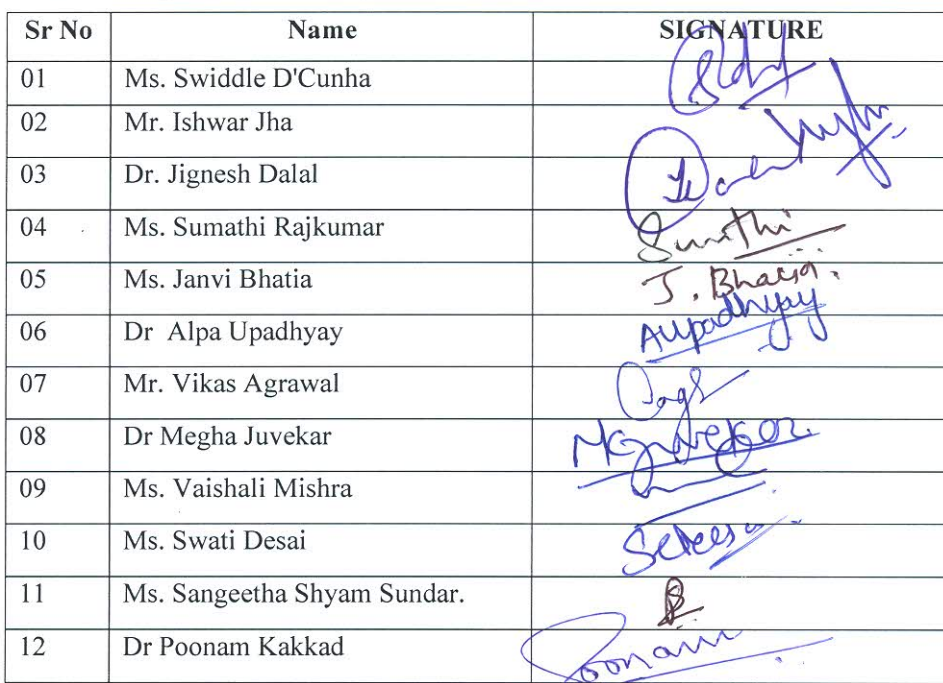 Sr No Name SIGNATURE
01 Ms. Swiddle D'Cunha
02 Mr. Ishwar Jha
03 Dr. Jignesh Dalal
04 Ms. Sumathi Rajkumar Sumathi
05 Ms. Janvi Bhatia J. Bhatia.
06 Dr Alpa Upadhyay AUpadhyay
07 Mr. Vikas Agrawal
08 Dr Megha Juvekar
09 Ms. Vaishali Mishra
10 Ms. Swati Desai
11 Ms. Sangeetha Shyam Sundar.
12 Dr Poonam Kakkad Poonam